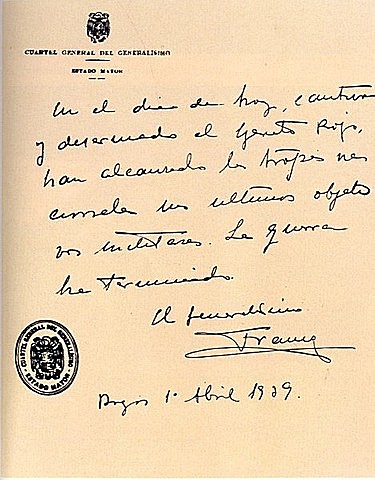 CUARTEL GENERAL DEL GENERALISIMO
ESTADO MAYOR
En el dia de hoy, cautivo
y desarmado el Ejercito Rojo,
han alcanzado las tropas na
cionales sus ultimos objeti
vos militares. La guerra
ha terminado.
El Generalisimo
Franco
Burgos 1º Abril 1939.
CUARTEL GENERAL DEL GENERALISIMO
ESTADO MAYOR